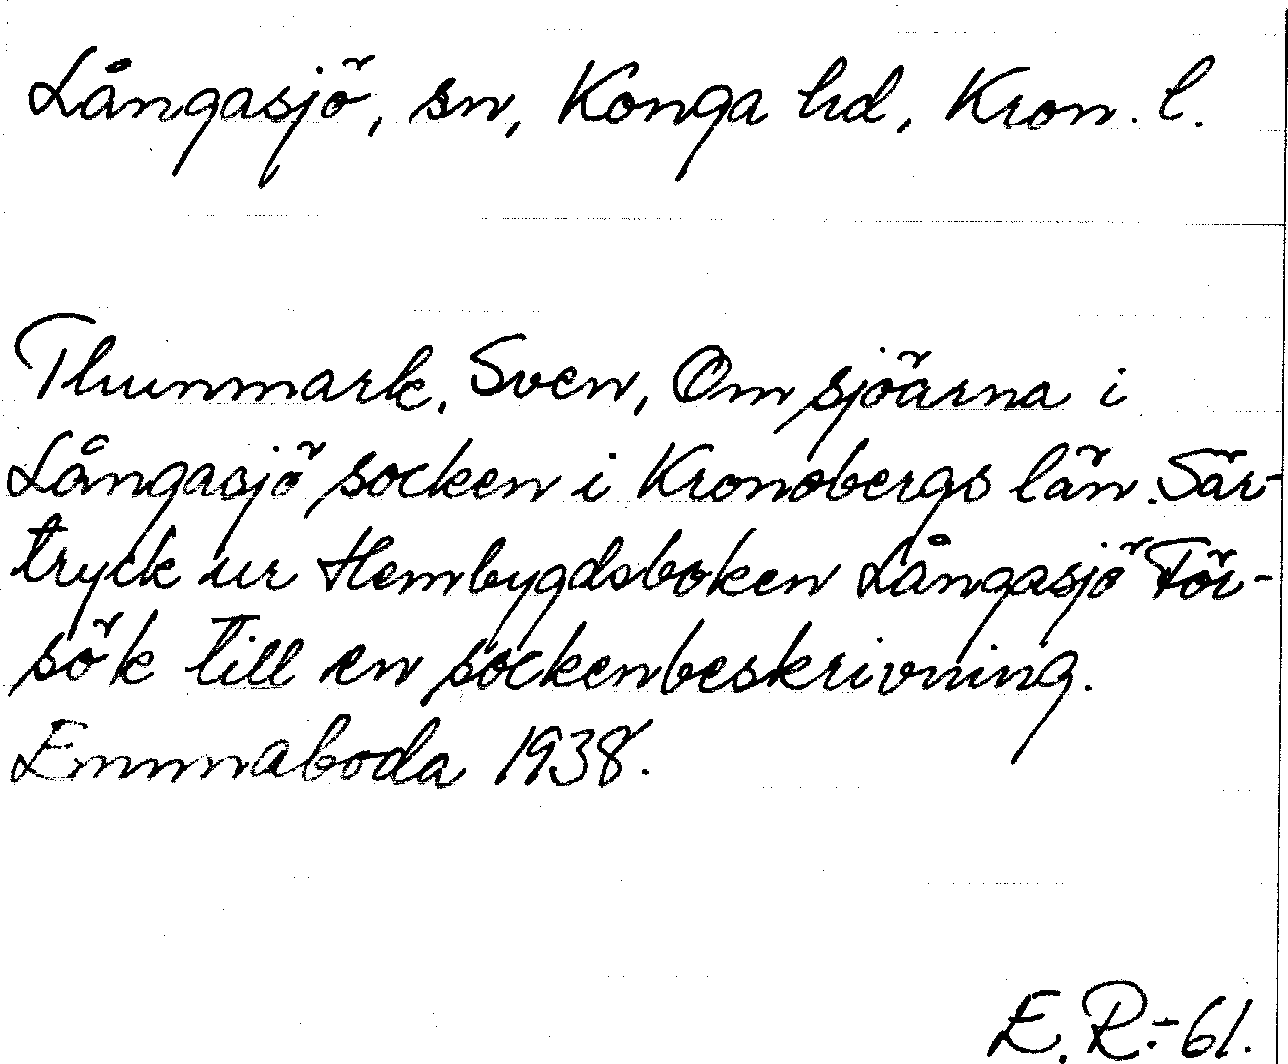 Långasjö, sn, Konga hd, Kron. l.
Thunmark, Sven, Om sjöarna i
Långasjö socken i Kronobergs län. Sär-
tryck ur Hembygdsboken Långasjö För-
sök till en sockenbeskrivning.
Emmaboda 1938.
E. R. -61.